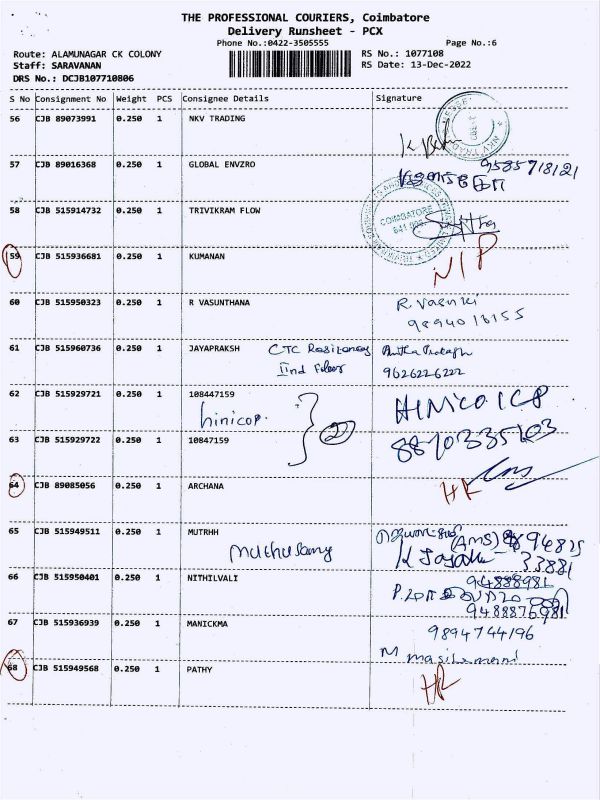 THE PROFESSIONAL COURIERS, Coimbatore
Delivery Runsheet - PCX
Phone No.:0422-3505555
Page No.:6
Route: ALAMUNAGAR CK COLONY
RS No.: 1077108
Staff: SARAVANAN
RS Date: 13-Dec-2022
DRS No.: DCJB107710806
S No Consignment No Weight PCS Consignee Details Signature
56 CJB 89073991 0.250 1 NKV TRADING
57 CJB 89016368 0.250 1 GLOBAL ENVZRO 9585718121
58 CJB 515914732 0.250 1 TRIVIKRAM FLOW
COIMBATORE
59 CJB 515936681 0.250 1 KUMANAN N/P
60 CJB 515950323 0.250 1 R VASUNTHANA
61 CJB 515960736 0.250 1 JAYAPRAKSH CTC
IInd
9626226222
62 CJB 515929721 0.250 1 108447159
hinicop. 2
63 CJB 515929722 0.250 1 10847159
64 CJB 89085056 0.250 1 ARCHANA
65 CJB 515949511 0.250 1 MUTRHH
(AMS)
33881
66 CJB 515950401 0.250 1 NITHILVALI
67 CJB 515936939 0.250 1 MANICKMA
9894744196
68 CJB 515949568 0.250 1 PATHY